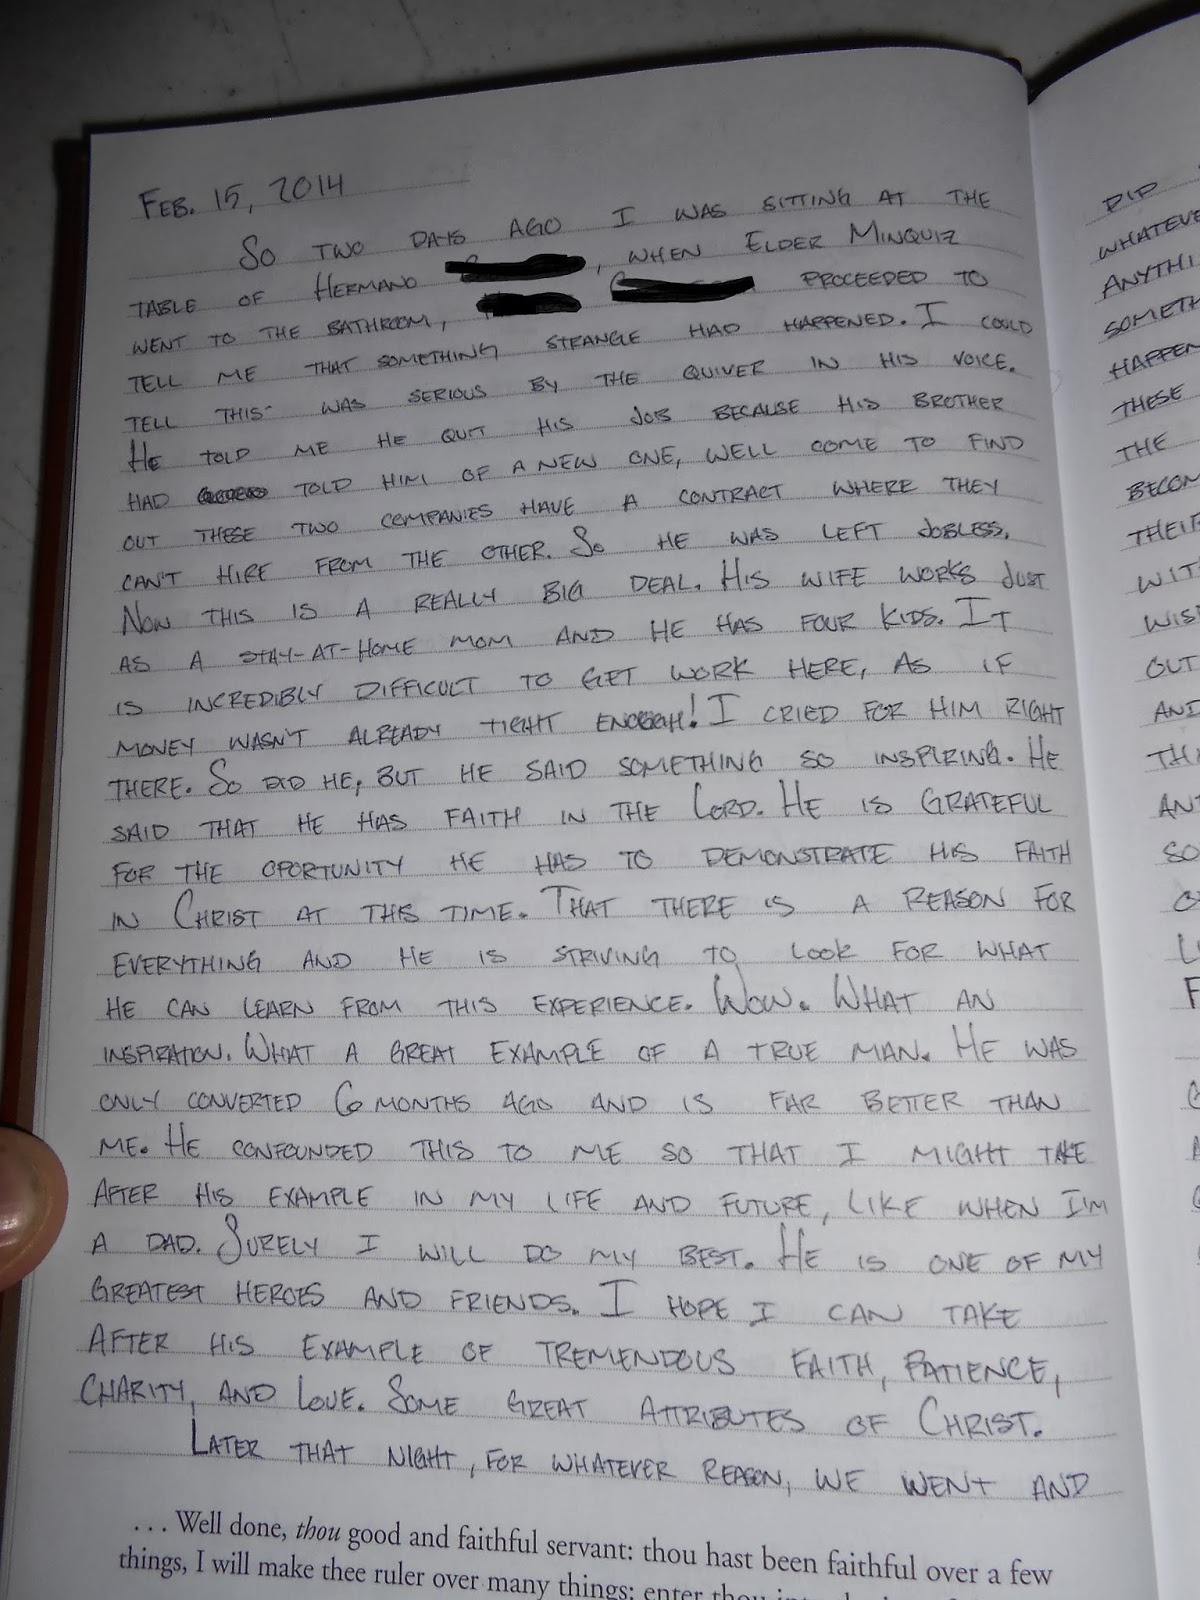 Feb. 15, 2014
So two days ago I was sitting at the
table of Hermano , when Elder Minquiz
went to the bathroom, proceeded to
tell me that something strange had happened. I could
tell this was serious by the quiver in his voice.
He told me he quit his job because his brother
had told him of a new one, well come to find
out these two companies have a contract where they
can't hire from the other. So he was left jobless.
Now this is a really big deal. His wife works just
as a stay-at-home mom and he has four kids. It
is incredibly difficult to get work here, as if
money wasn't already tight enough! I cried for him right
there. So did he, but he said something so inspiring. He
said that he has faith in the Lord. He is grateful
for the oportunity he has to demonstrate his faith
in Christ at this time. That there is a reason for
everything and he is striving to look for what
he can learn from this experience. Wow. What an
inspiration. What a great example of a true man. He was
only converted 6 months ago and is far better than
me. He confounded this to me so that I might take
after his example in my life and future, like when I'm
a dad. Surely I will do my best. He is one of my
greatest heroes and friends. I hope I can take
after his example of tremendous faith, patience,
charity, and love. Some great attributes of Christ.
Later that night, for whatever reason, we went and
... Well done, thou good and faithful servant: thou hast been faithful over a few
things, I will make thee ruler over many things: enter thou
Did
whateve
anythi
someth
happen
these
the
becom
their
wit
wis
out
and
th
an
so
o
L
F